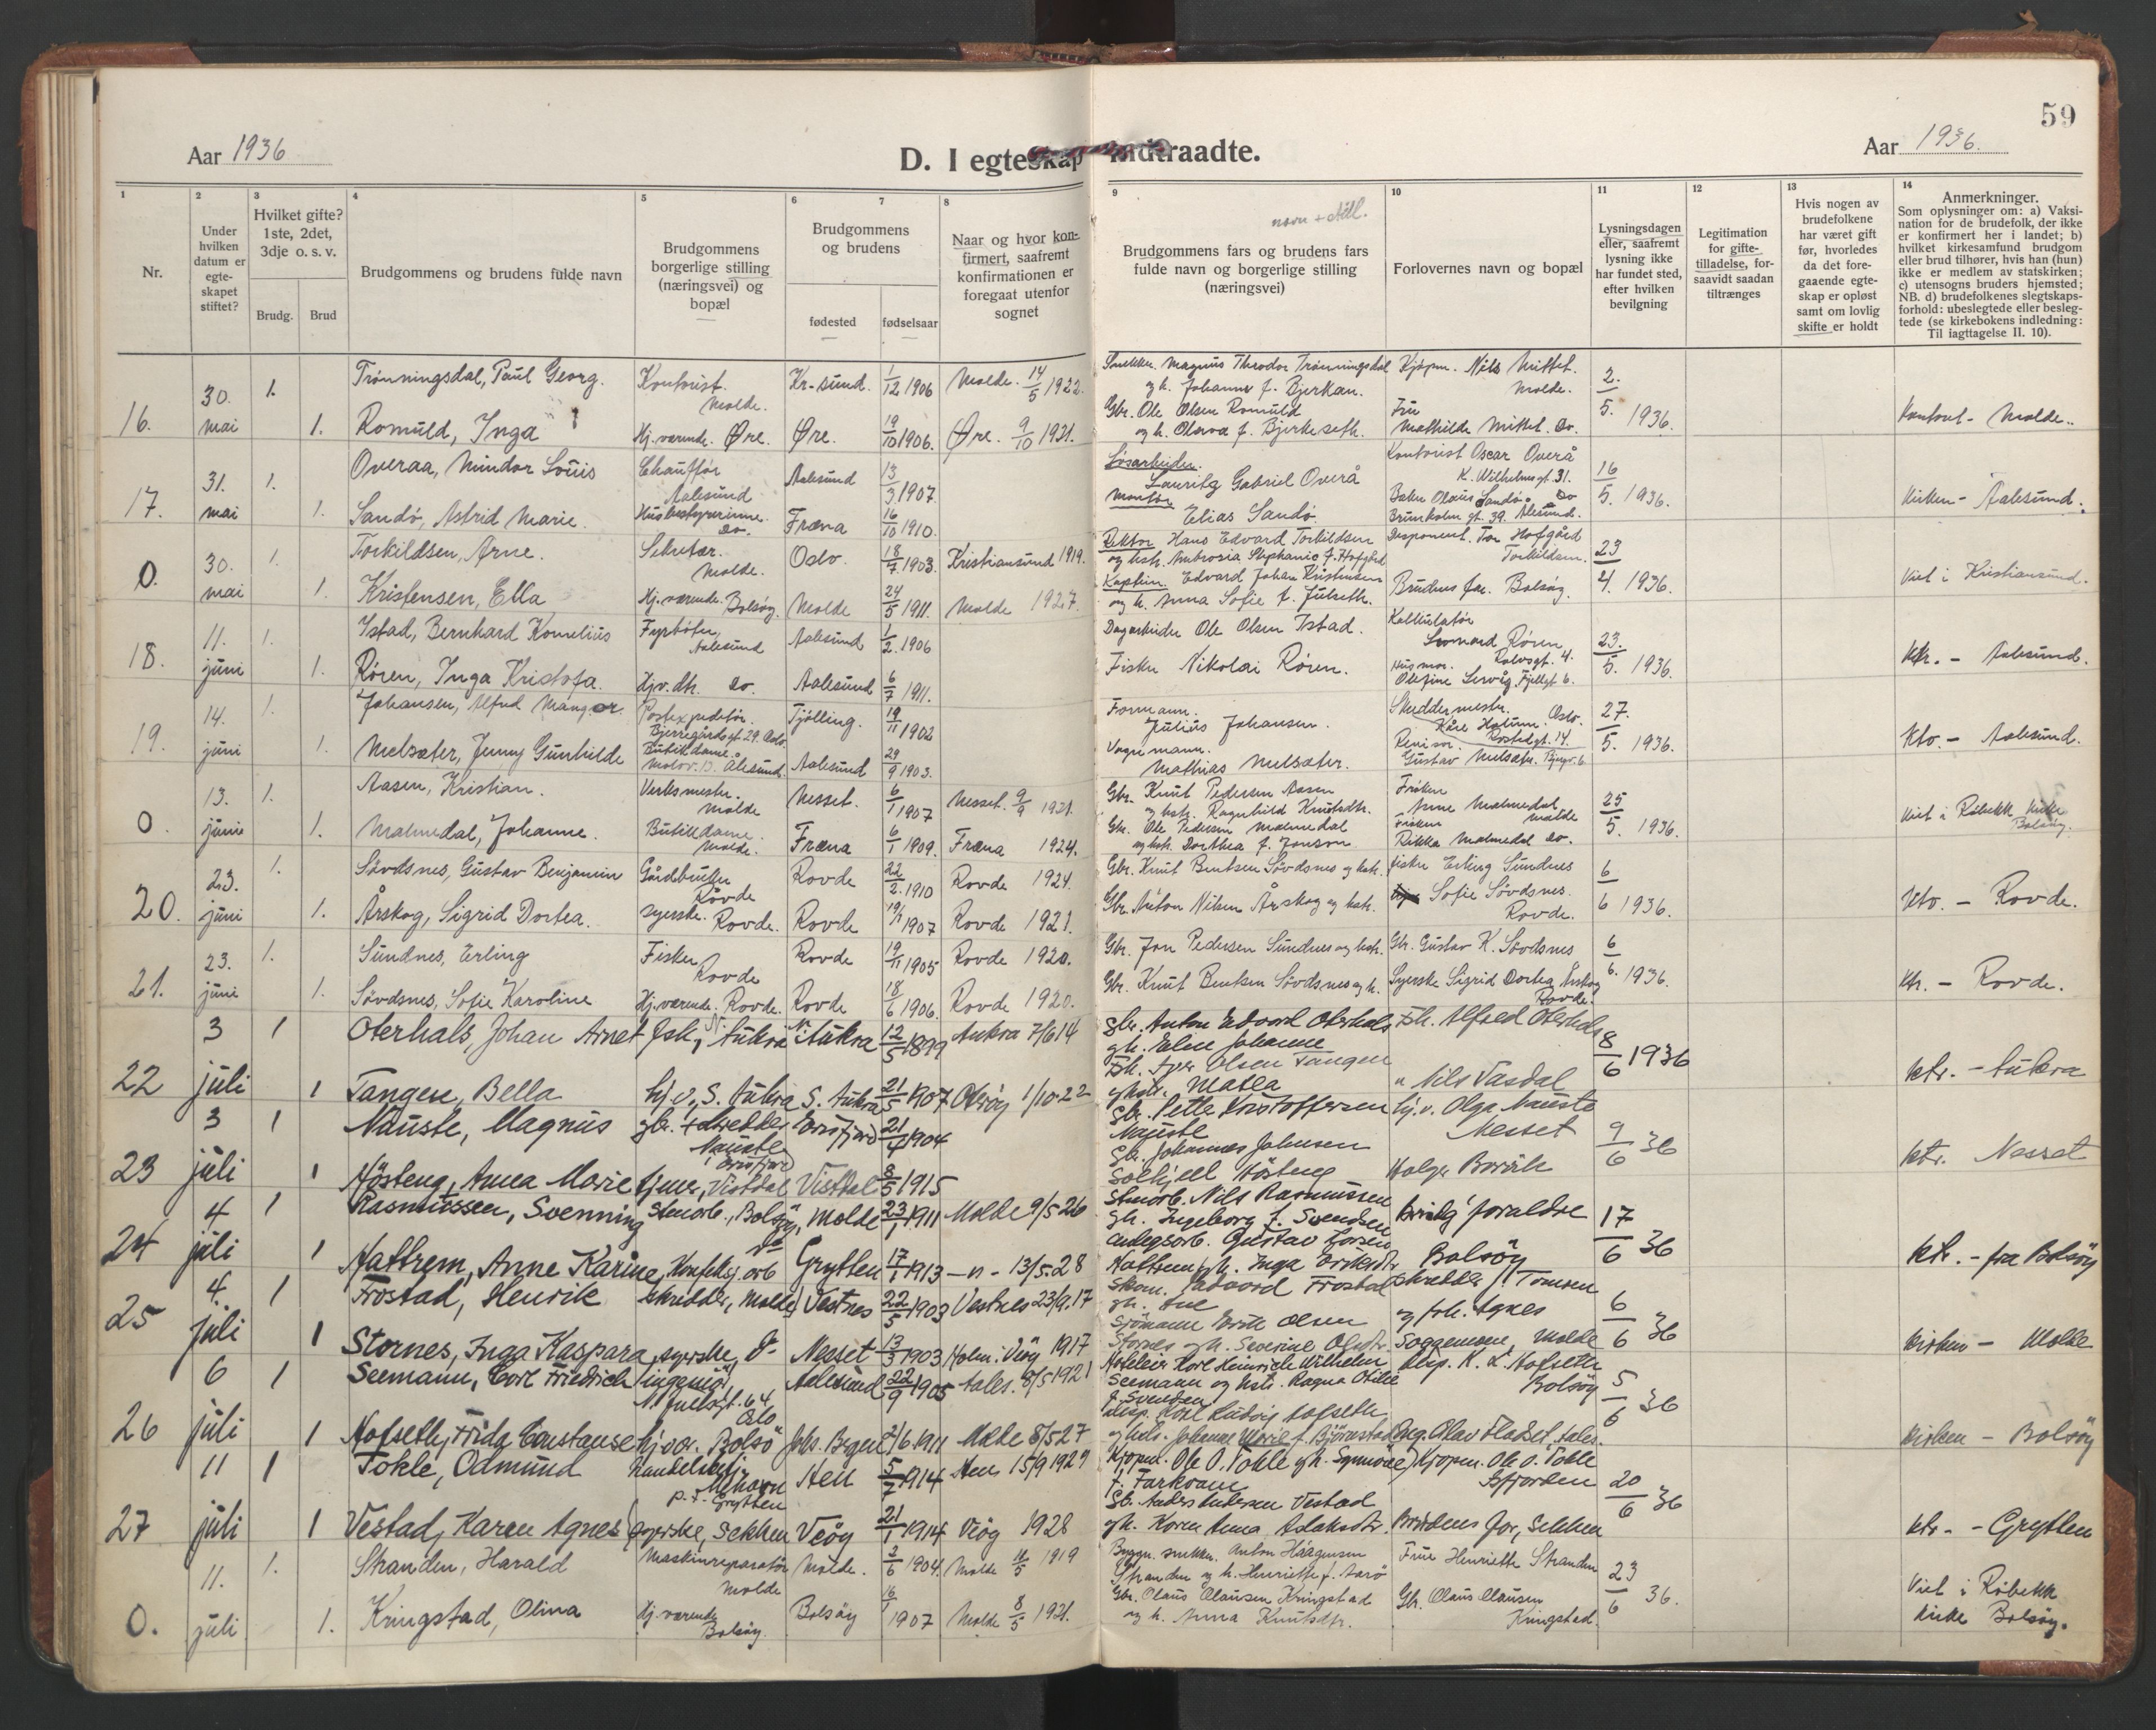 59
Aar 1936
D. I egteskap indtraadte.
Aar 1936.
1
2
3
4
5
6
7
8
9
10
11
12
13
14
Nr.
Under hvilken datum er egte-skapet stiftet?
Hvilket gifte? 1ste, 2det, 3dje o. s. v.
Brudg.
Brud
Brudgommens og brudens fulde navn
Brudgommens borgerlige stilling (næringsvei) og bopæl
Brudgommens og brudens
fødested
fødselsaar
Naar og hvor kon-firmert, saafremt konfirmationen er foregaat utenfor sognet
navn + still.
Brudgommens fars og brudens fars fulde navn og borgerlige stilling (næringsvei)
Forlovernes navn og bopæl
Lysningsdagen eller, saafremt lysning ikke har fundet sted, efter hvilken bevilgning
Legitimation for gifte-tilladelse, for-saavidt saadan tiltrænges
Hvis nogen av brudefolkene har været gift før, hvorledes da det fore-gaaende egte-skap er opløst samt om lovlig skifte er holdt
Anmerkninger.
Som oplysninger om: a) Vaksi-nation for de brudefolk, der ikke er konfirmert her i landet; b) hvilket kirkesamfund brudgom eller brud tilhører, hvis han (hun) ikke er medlem av statskirken; c) utensogns bruders hjemsted; NB. d) brudefolkenes slegtskaps-forhold: ubeslegtede eller besleg-tede (se kirkebokens indledning: Til iagttagelse II. 10).
16. 30. mai 1. Trønningsdal, Paul Georg. Kontorist. Molde. Kr-sund. 1/12 1906 Molde. 14/5 1922. Snekker Magnus Theodor Trønningsdal og h. Johanne f. Bjerkan. Kjøpm. Nils Mittet. Molde. 2./5. 1936. Kontoret - Molde.
1. Romuld, Inga Hj. værende. Øre. Øre. 19/10 1906. Øre. 9/10 1921. Gbr. Ole Olsen Romuld og h. Olava f. Bjerkeseth. Fru Mathilde Mittet. do.
17. 31. mai 1. Overaa, Mindor Louis Chauffør Aalesund Aalesund 13/3 1907. Løsarbeider. Lauritz Gabriel Overå Kontorist Oscar Overå K. Wilhelmsgt. 31. 16/5. 1936. Kirken - Aalesund.
1. Sandø, Astrid Marie. Husbestyrerinne. do. Fræna 16/10 1910. Montør Elias Sandø. Baker Olaus Sandø. do Brunholm gt. 39. Ålesund.
0. 30. mai 1. Torkildsen, Arne. Sekretær. Molde. Oslo. 18/7 1903. Kristiansund 1919. Rektor Hans Edvard Torkildsen og hstr. Ambrosia Stephanie f. Hofgård Disponent. Tor Hofgård Torkildsen. 23/4. 1936. Viet i Kristiansund.
1. Kristensen, Ella Hj. værende. Bolsøy. Molde 24/5 1911. Molde 1927. Kaptein. Edvard Johan Kristensen og h. Anna Sofie f. Julseth. Brudens far. Bolsøy.
18. 11. juni 1. Istad, Bernhard Kornelius Fyrbøter, Aalesund Aalesund 1/2. 1906 Dagarbeider Ole Olsen Istad. Kalkulatør Leonard Røren Rolvsgt. 4. 23./5. 1936. Ktr. - Aalesund.
1. Røren, Inga Kristofa. Hjv. dtr. do. Aalesund 6/7 1911. Fisker Nikolai Røren. Husmor. Olefine Servåg. Fjellgt 6.
19. 14. juni 1. Johansen, Alfred Mangor. Postexpeditør. Bjerregårdsgt 29. Oslo. Tjølling. 19/11 1902 Formann. Julius Johansen. Skreddermestr. Oslo. Kåre Hatum. Rostedgt. 14. 27./5. 1936. Kto. - Aalesund.
1. Melsæter, Jenny Gunhilde Butikdame. Molov. 13. Ålesund. Aalesund 29/9 1903. Vognmann. Mathias Melsæter. Revisor. Gustav Melsæter.
0. 13. juni 1. Aasen, Kristian. Verksmester. Molde Nesset. 6/1 1907 Nesset. 9/9 1921. Gbr. Knut Pedersen Aasen og hstr. Ragnhild Knutsdtr. Frøken Anne Malmedal Molde 25/5. 1936. Viet i Røbekk kirke Bolsøy.
1. Malmedal, Johanne. Butikdame. Molde. Fræna 6/1 1909. Fræna 1924. Gbr. Ole Pedersen Malmedal og hstr. Dorthea f. Jonson. Frøken Rikka Malmedal do.
20. 23. juni 1. Søvdsnes, Gustav Benjamin Gårdbruker Rovde Rovde 22/2. 1910 Rovde 1924. Gbr. Knut Bentsen Søvdsnes og hstr. Fisker Erling Sundnes 6/6 1936. Kto. - Rovde.
1. Årskog, Sigrid Dortea. Syerske. Rovde. Rovde 19/1 1907 Rovde 1921. Gbr. Anton Nilsen Årskog og hstr. Sofie Søvdsnes. Rovde.
21. 23. juni 1. Sundnes, Erling Fisker, Rovde Rovde 19/11 1905 Rovde 1920. Gbr. Jon Pedersen Sundnes og hstr. Gbr. Gustav K. Søvdsnes 6/6. 1936. Ktr. - Rovde.
1. Søvdsnes, Sofie Karoline Hj. værende. Rovde. Rovde 18/6 1906. Rovde 1920. Gbr. Knut Bentsen Søvdsnes og h. Syerske Sigrid Dortea Årskog Rovde.
22 3 juli 1 Oterhals, Johan Arnet fsk., N. Aukra N. Aukra 12/5 1899 Aukra 7/6 14 gbr. Anton Edvard Oterhals gh. Eline Johanne Fsk. Alfred Oterhals 8/6 1936 ktr. - Aukra
1 Tangen, Bella hj. v., S. Aukra S. Aukra 21/5 1907 Otrøy 1/10-22 Fsk. Iver Olsen Tangen ghstr. Matea " Nils Vasdal
23 3 juli 1 Nauste, Magnus gbr. + skredder Nauste, Eresfjord Eresfjord 21/4 1904 gbr. Petter Kristoffersen Nauste hj. v. Olga Nauste Nesset 9/6 36 ktr. Nesset
1 Høsteng, Anna Marie hjmv., Vistdal Vistdal 8/5 1915 gbr. Johannes Johnsen Solhjell Høsteng Holger Bersås
24 4 juli 1 Rasmussen, Svenning stenarb., Bolsøy, Molde 23/7 1911 Molde 9/5 26 Stenarb. Nils Rasmussen gh. Ingeborg f. Svendsen foreldre Bolsøy 17/6 36 ktr. - fra Bolsøy
1 Hattrem, Anne Karine, Konfeksj. arb do Grytten 17/1 1913 -"- 13/5-28 anlegsarb. Gustav Hattrem gh. Inga
25 4. juli 1 Frostad, Henrik skredder, Molde Vestnes 22/5 1903 Vestnes 23/9. 17 skom. Edvard Frostad gh. Ane skredder J. Tomren og frk. Agnes 6/6 36 kirken - Molde
1 Stornes, Inga Kaspara, syerske, do Nesset 13/3 1903 Holm i Veøy 1917 sjømann Erik Olsen Stornes gh. Severine Olsdtr. Soggemoen, Molde
26 6 juli 1 Seemann, Carl Friedrich ingeniør, N. Juelsgt. 64 Oslo Aalesund 22/9 1905 Aales. 8/5 1921 Hoteleier Karl Heinrich Wilhelm Seemann og hstr. Ragna Otilie f. Svendsen disp. K. L. Hofseth Bolsøy 5/6 36 kirken - Bolsøy
1 Hofseth, Frida Constanse hj. vær. Bolsø 2/6. 1911 Molde 8/5 27 disp. Karl Ludvig Hofseth og hstr. Johanne Marie f. Bjørnstad Olav Fladset, Aales.
27 11 juli 1 Tokle, Odmund handelsbetj. Mehavn p. t. Grytten Hen 5/7 1914 Hen 15/9 1929 Kjøpm. Ole O. Tokle gh. Synnøve f. Farkvam Kjøpm. Ole O. Tokle Isfjorden 20/6 36 ktr. - Grytten
1 Vestad, Karen Agnes syerske, Sekken Veøy 21/1 1914 Veøy 1928 Gbr. Anders Andersen Vestad gh. Karen Anna Aslaksdtr. Brudens far, Sekken
0. 11. juli 1. Stranden, Harald Maskinreparatør Molde Molde. 2/6 1904. Molde 11/5 1919 Byggn. snekker. Anton Haagensen Stranden og h. Henriette f. Aarø Frue Henriette Stranden 23/6 36. Viet i Røbekk kirke Bolsøy.
1. Kringstad, Olina Hj. værende Bolsøy. Bolsøy 16/1 1907 Molde 8/5 1921. Gbr. Olaus Olausen Kringstad og h. Anna Knutsdtr. Gbr. Olaus Olausen Kringstad.